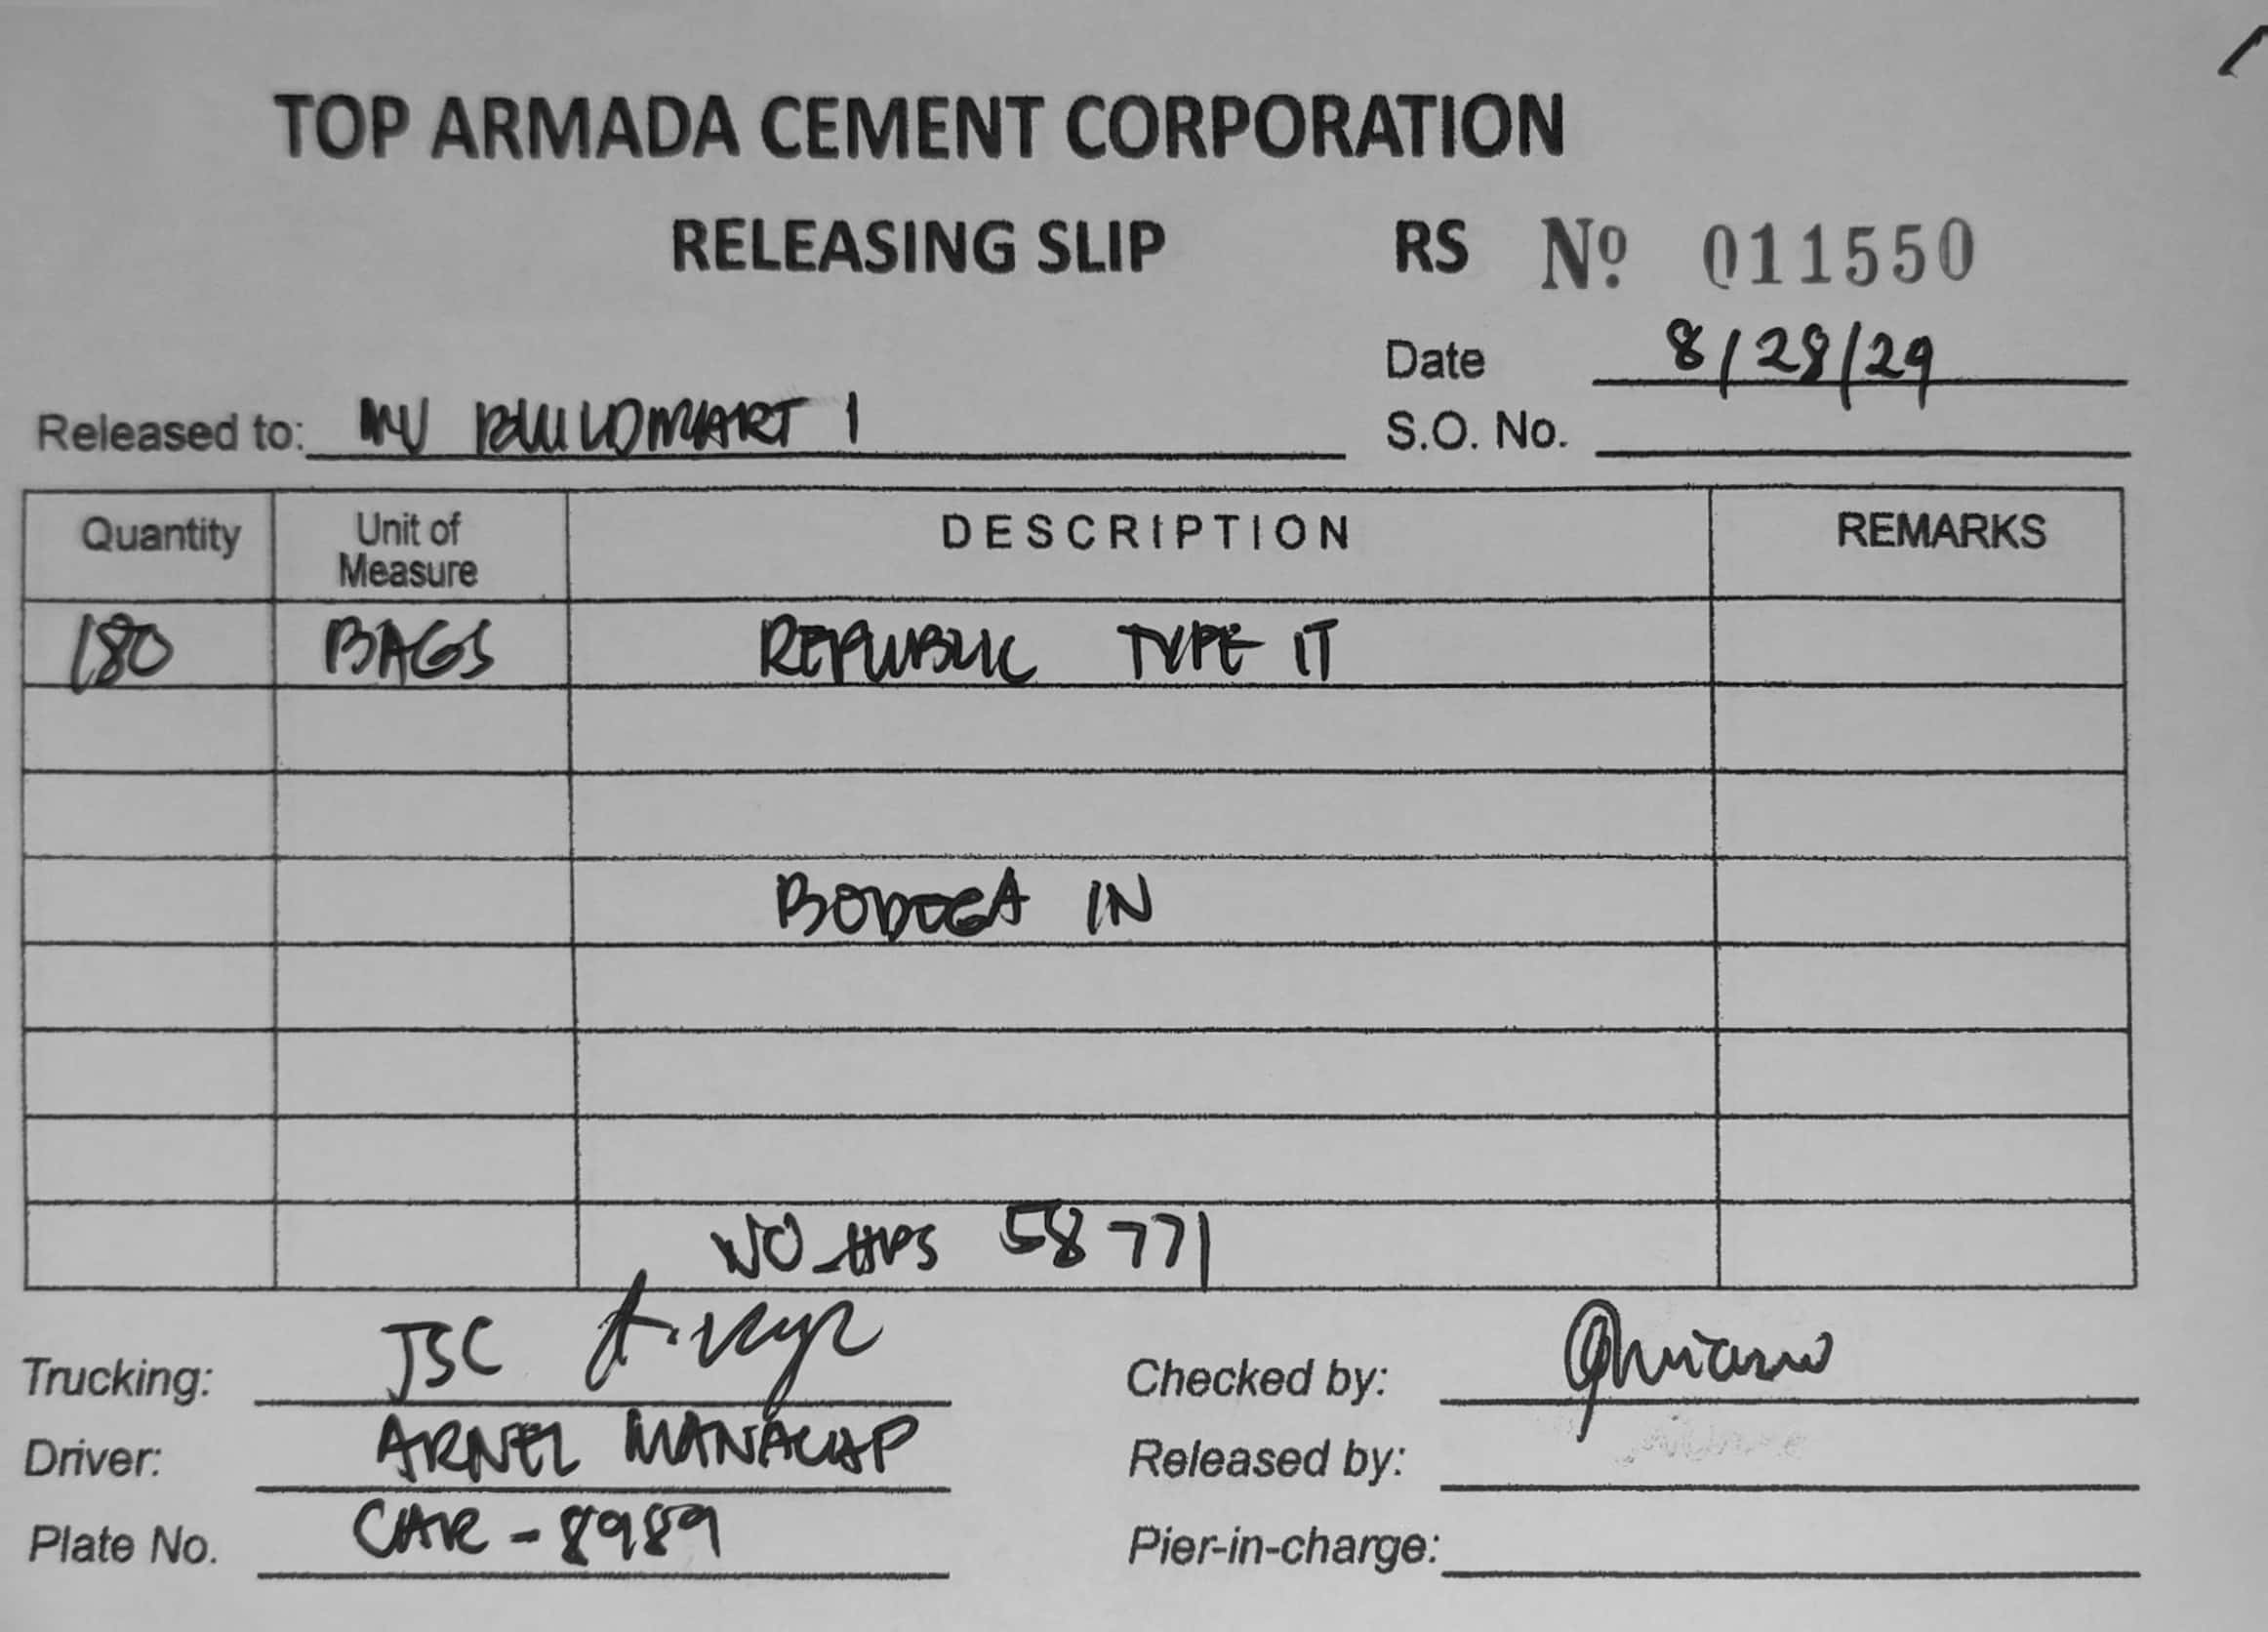 TOP ARMADA CEMENT CORPORATION
RELEASING SLIP RS Nº 011550
Date 8/28/29
Released to: MV BUILDMART 1 S.O. No.
Quantity Unit of Measure DESCRIPTION REMARKS
180 BAGS REPUBLIC TYPE IT
BODEGA IN
WO 58771
Trucking: JSC Checked by:
Driver: ARNEL Released by:
Plate No. CAR-8989 Pier-in-charge: